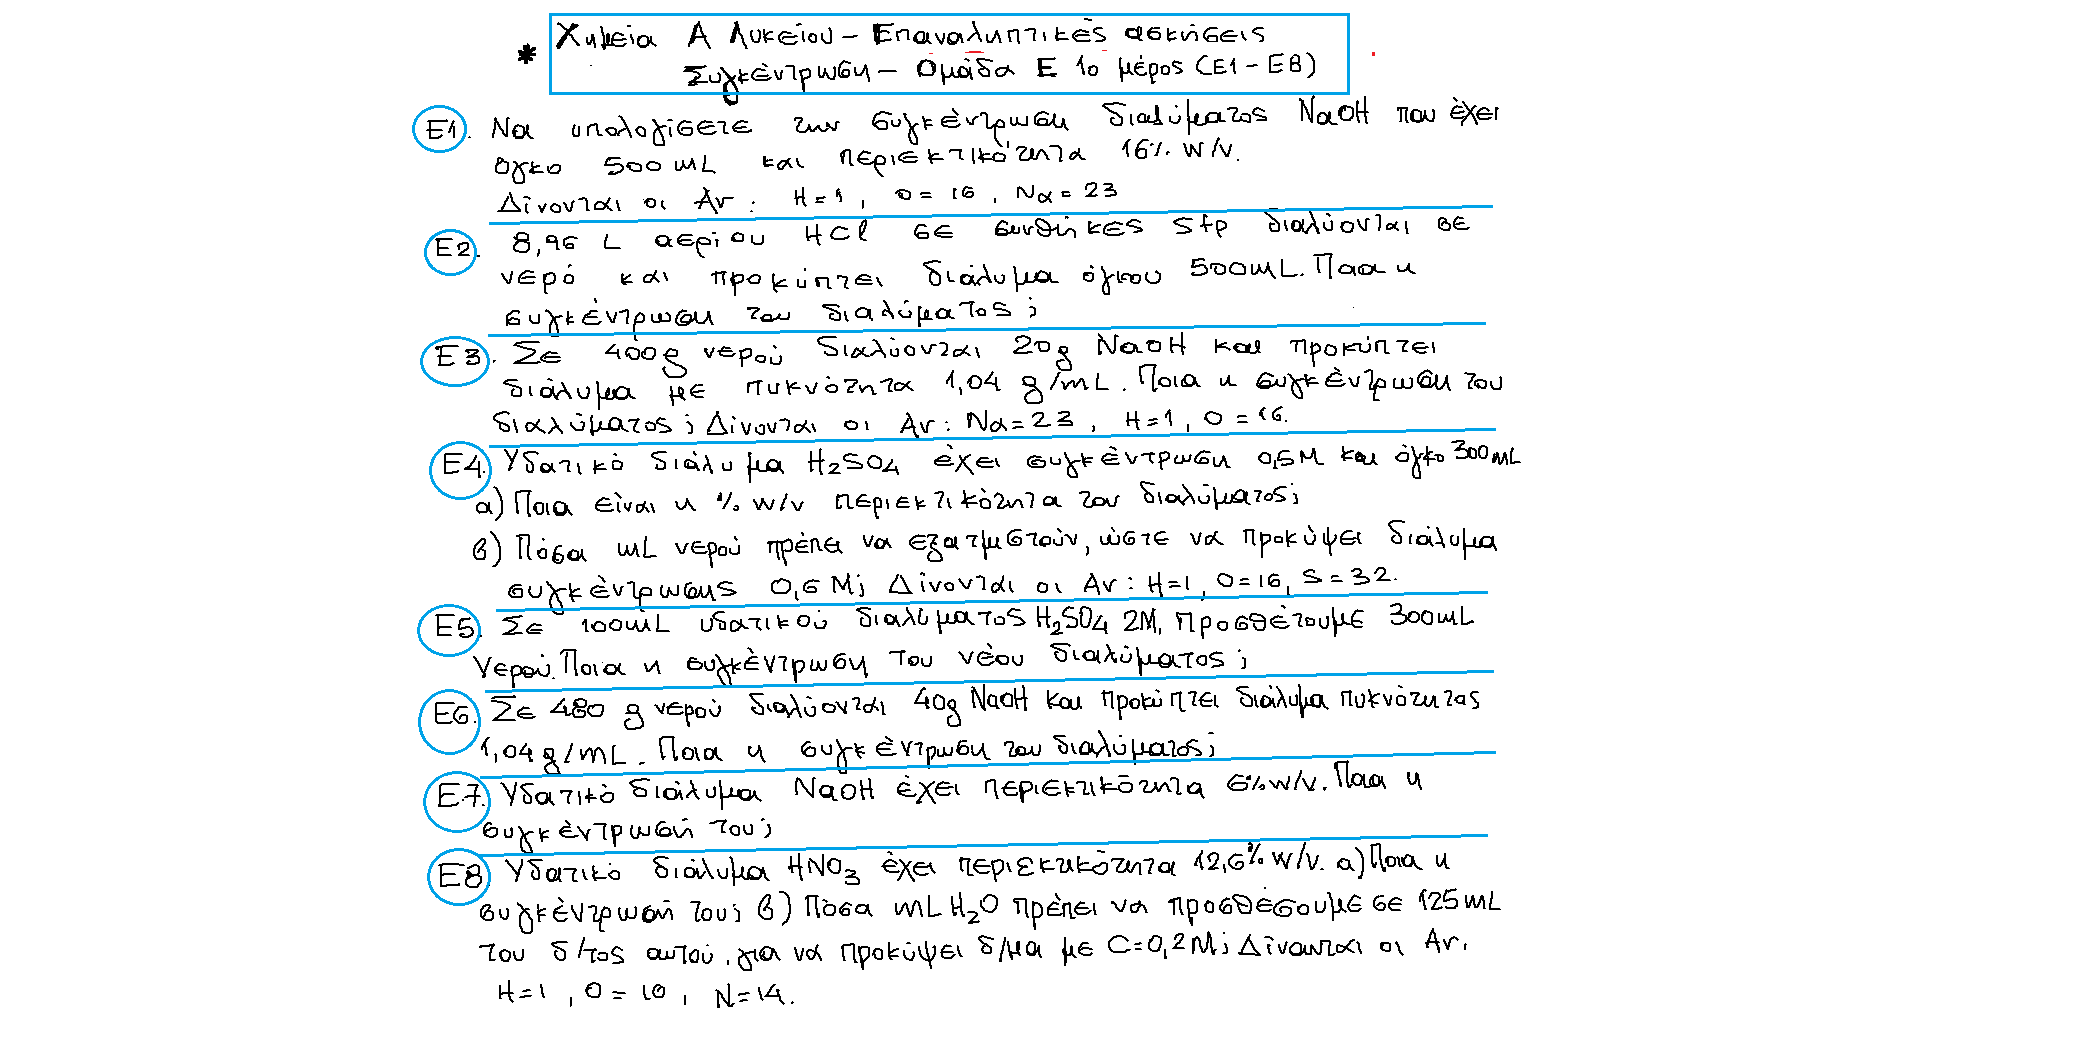 * Χημεία Α Λυκείου - Επαναληπτικές ασκήσεις
Συγκέντρωση - Ομάδα Ε 1ο μέρος (Ε1 - Ε8)
Ε1. Να υπολογίσετε την συγκέντρωση διαλύματος NaOH που έχει
όγκο 500 mL και περιεκτικότητα 16% w/v.
Δίνονται οι Ar: H=1, O=16, Na=23
Ε2. 8,96 L αερίου HCl σε συνθήκες stp διαλύονται σε
νερό και προκύπτει διάλυμα όγκου 500mL. Ποια η
συγκέντρωση του διαλύματος;
Ε3. Σε 400g νερού διαλύονται 20g NaOH και προκύπτει
διάλυμα με πυκνότητα 1,04 g/mL. Ποια η συγκέντρωση του
διαλύματος; Δίνονται οι Ar: Na=23, H=1, O=16.
Ε4. Υδατικό διάλυμα H₂SO4 έχει συγκέντρωση 0,5M και όγκο 300mL
α) Ποια είναι η % w/v περιεκτικότητα του διαλύματος;
β) Πόσα mL νερού πρέπει να εξατμιστούν, ώστε να προκύψει διάλυμα
συγκέντρωσης 0,6 M; Δίνονται οι Ar: H=1, O=16, S=32.
Ε5. Σε 100mL υδατικού διαλύματος H₂SO4 2M, προσθέτουμε 300mL
νερού. Ποια η συγκέντρωση του νέου διαλύματος;
Ε6. Σε 480 g νερού διαλύονται 40g NaOH και προκύπτει διάλυμα πυκνότητας
1,04 g/mL. Ποια η συγκέντρωση του διαλύματος;
Ε7. Υδατικό διάλυμα NaOH έχει περιεκτικότητα 6% w/v. Ποια η
συγκέντρωσή του;
Ε8 Υδατικό διάλυμα HNO₃ έχει περιεκτικότητα 12,6% w/v. α) Ποια η
συγκέντρωσή του; β) Πόσα mL H₂O πρέπει να προσθέσουμε σε 125mL
του δ/τος αυτού, για να προκύψει δ/μα με C=0,2M; Δίνονται οι Ar.
H=1, O=16, N=14.